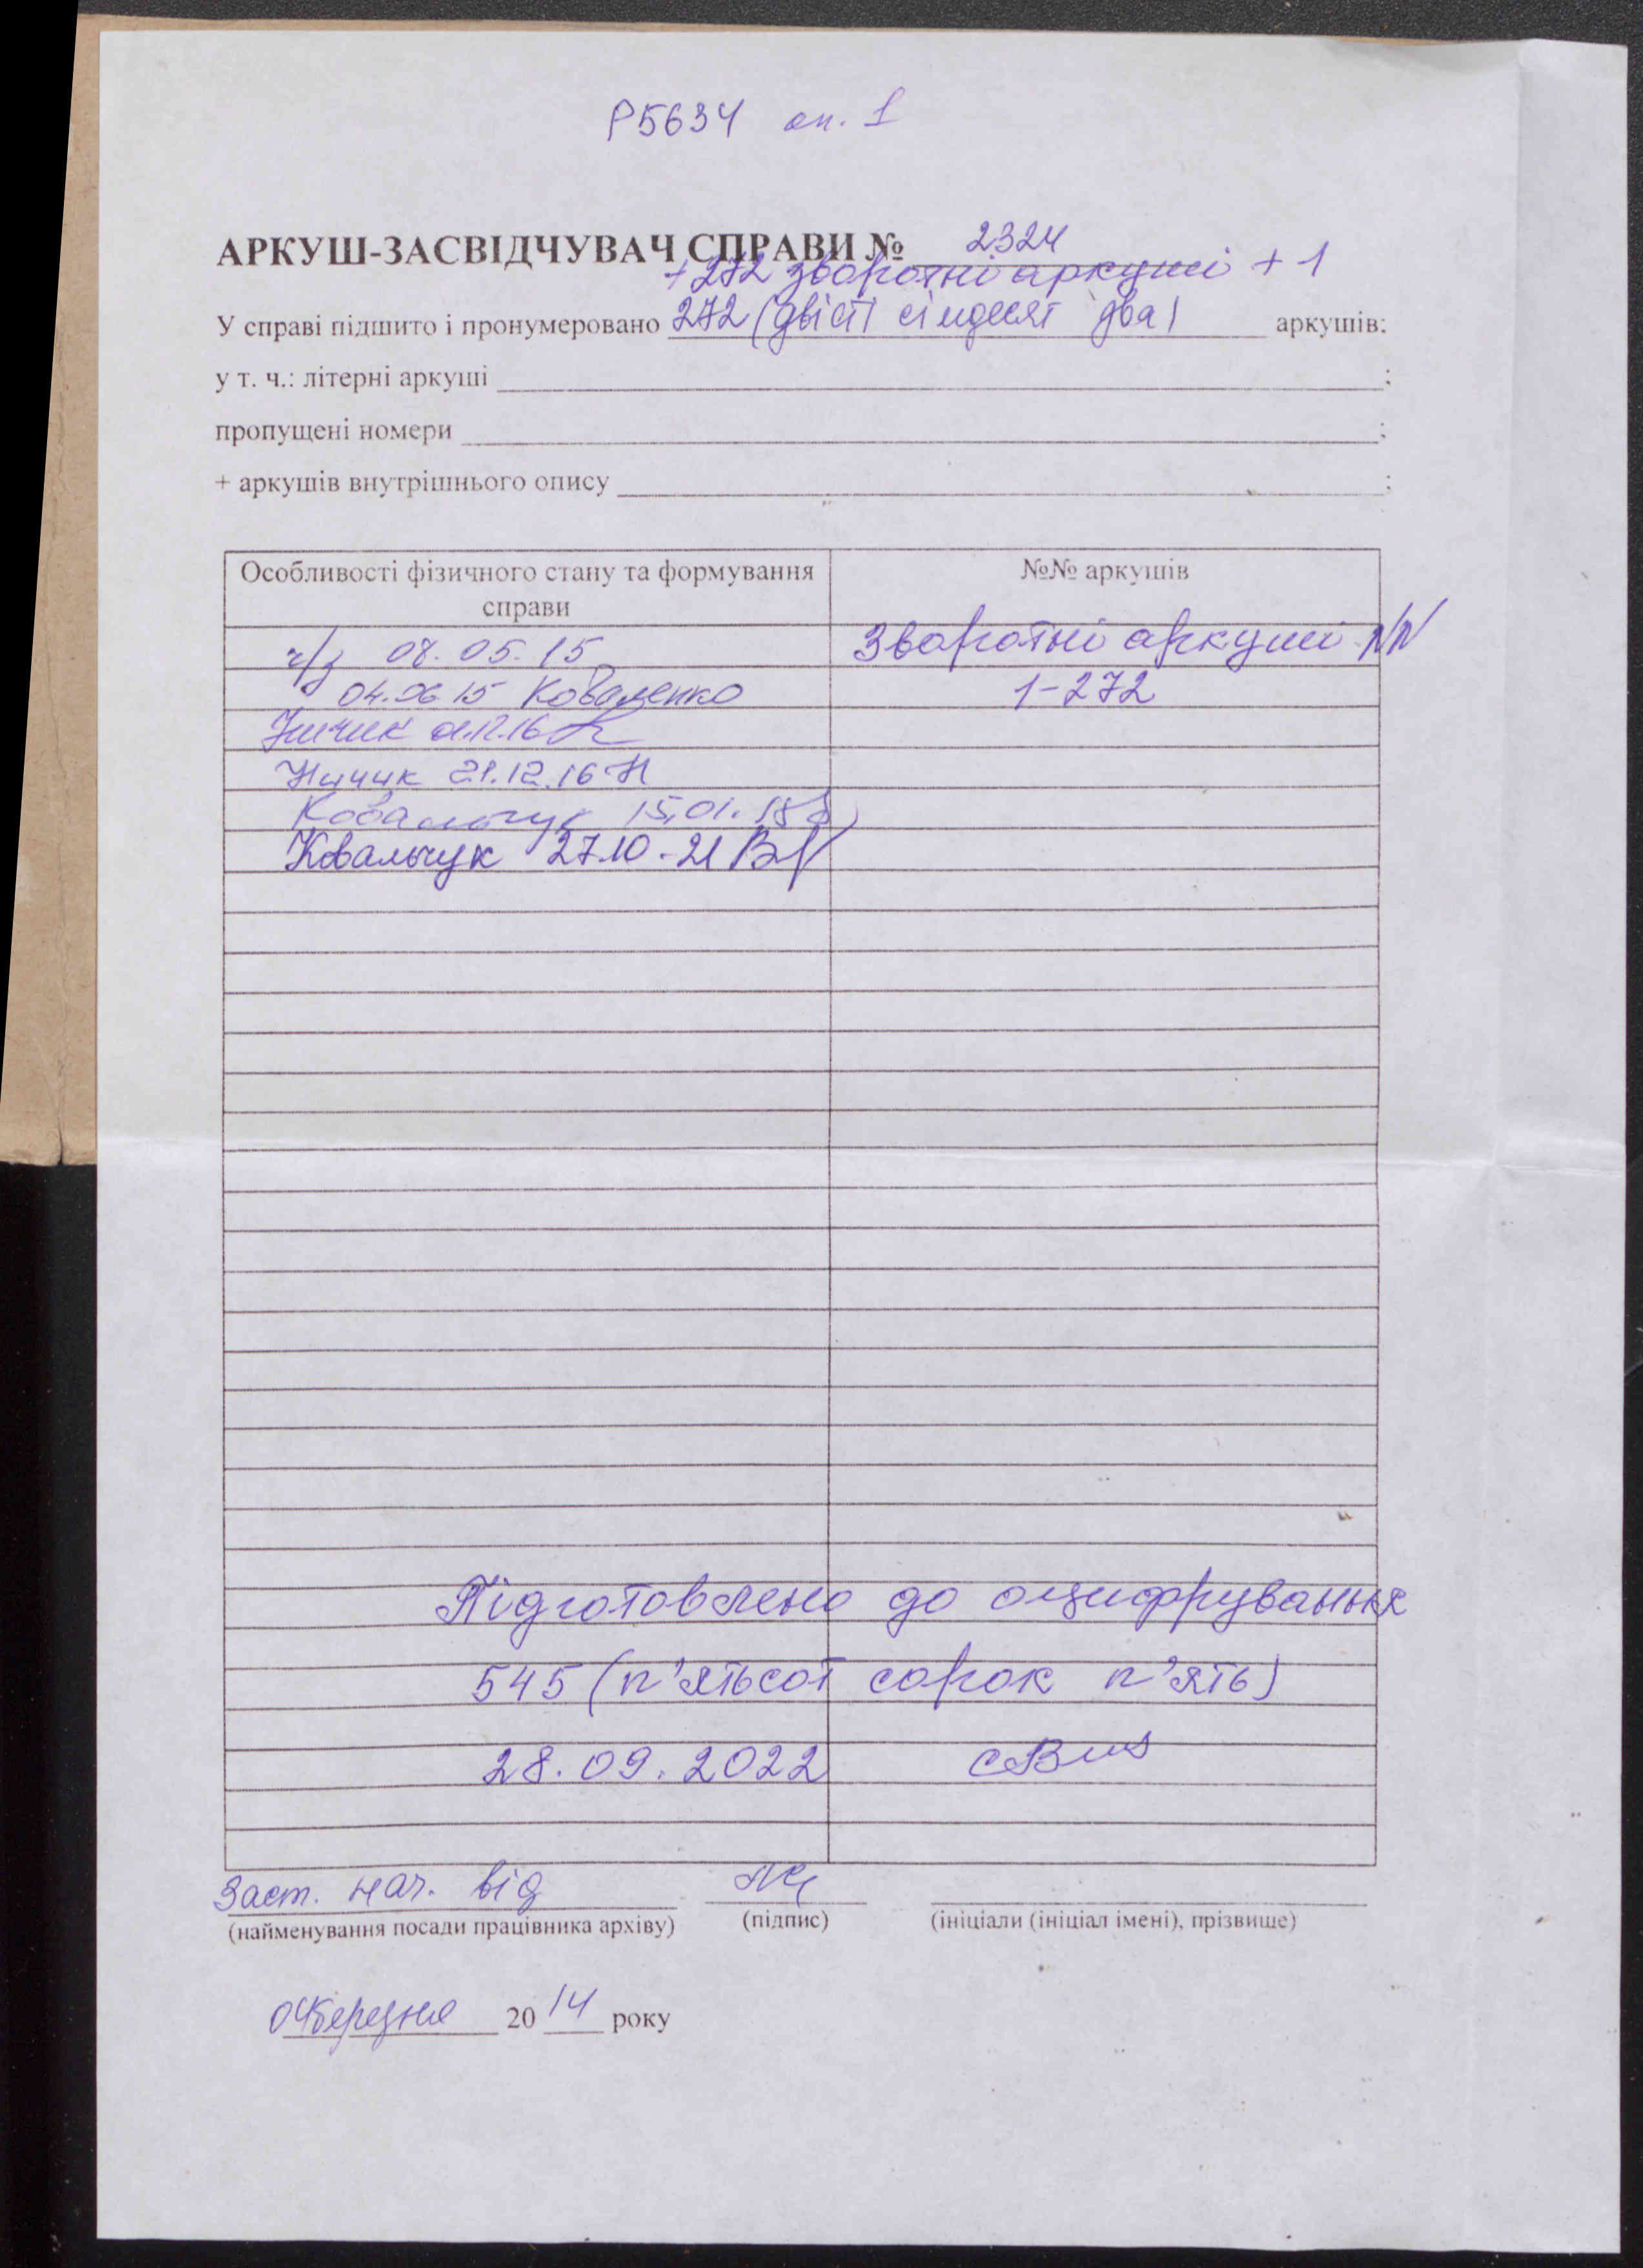 Р5634 оп. 1
АРКУШ-ЗАСВІДЧУВАЧ СПРАВИ № 2324
+ 272 зворотні аркуші + 1
У справі підшито і пронумеровано 272 (двісті сімдесят два) аркушів;
у т. ч.: літерні аркуші ;
пропущені номери ;
+ аркушів внутрішнього опису ;
Особливості фізичного стану та формування справи
№№ аркушів
ч/з 08.05.15
Зворотні аркуші NN
04.06.15 Коваленко
1-272
16
Ничик 21.12.16
Ковальчук 15.01.18
Ковальчук 27.10-21
Підготовлено до оцифрування
545 (п'ятьсот сорок п'ять)
28.09.2022
Заст. нач. від
(найменування посади працівника архіву) (підпис) (ініціали (ініціал імені), прізвище)
04 березня 2014 року